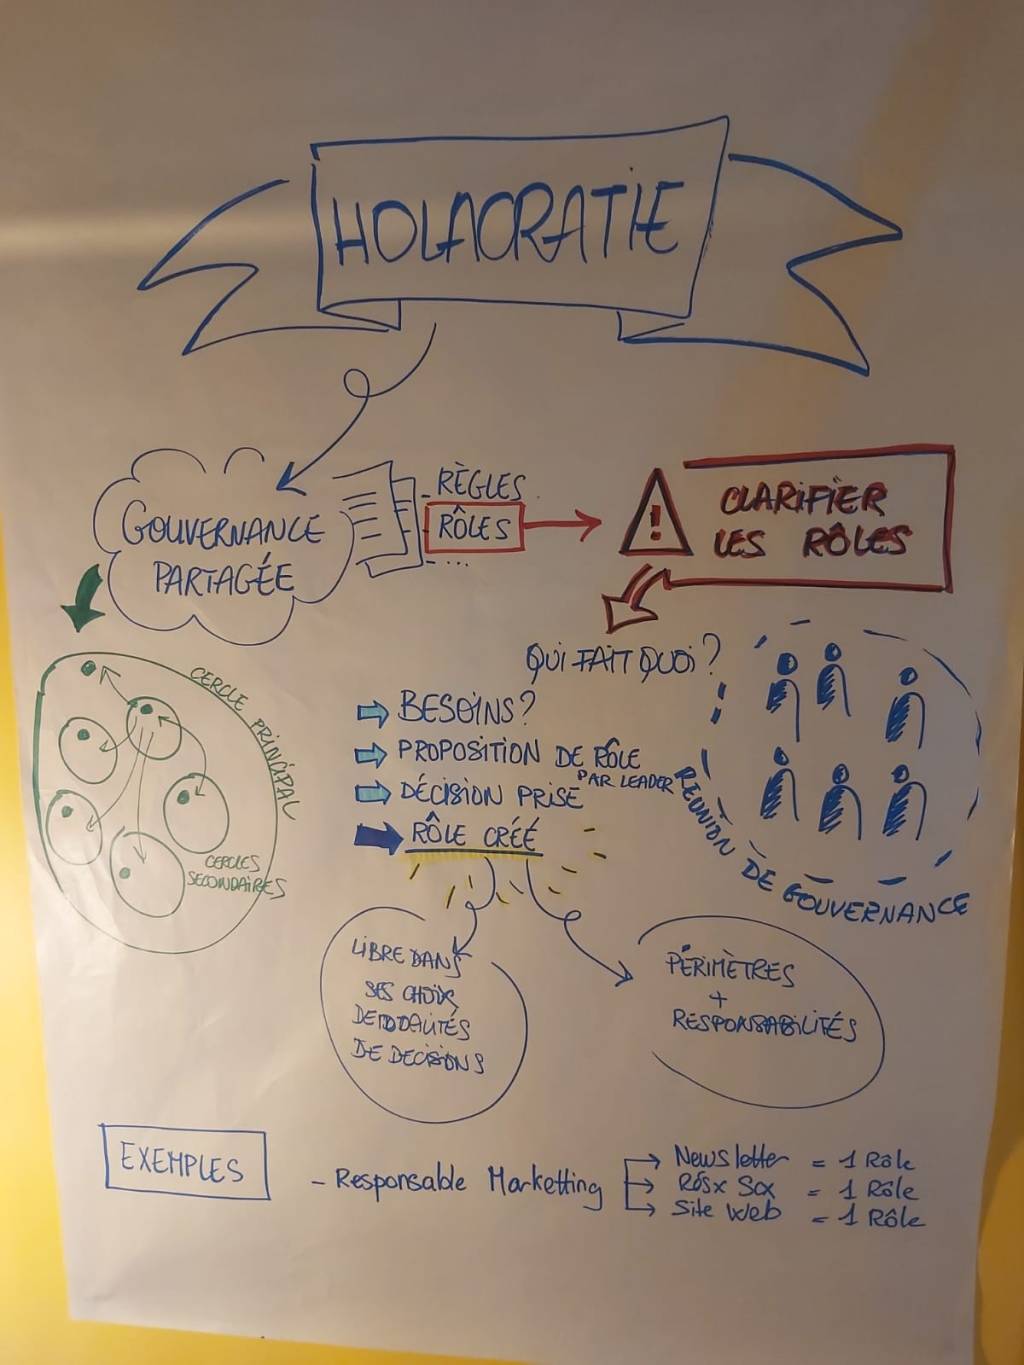 HOLACRATIE
GOUVERNANCE
PARTAGÉE
- RÈGLES
- RÔLES
- ...
!
CLARIFIER
LES RÔLES
QUI FAIT QUOI ?
CERCLE PRINCIPAL
CERCLES
SECONDAIRES
BESOINS ?
PROPOSITION DE RÔLE
PAR LEADER
DÉCISION PRISE
RÔLE CRÉÉ
RÉUNION DE GOUVERNANCE
LIBRE DANS
SES CHOIX
DE MODALITÉS
DE DECISIONS
PÉRIMÈTRES
+
RESPONSABILITÉS
EXEMPLES
- Responsable Marketting
Newsletter = 1 Rôle
Résx Sox = 1 Rôle
Site Web = 1 Rôle